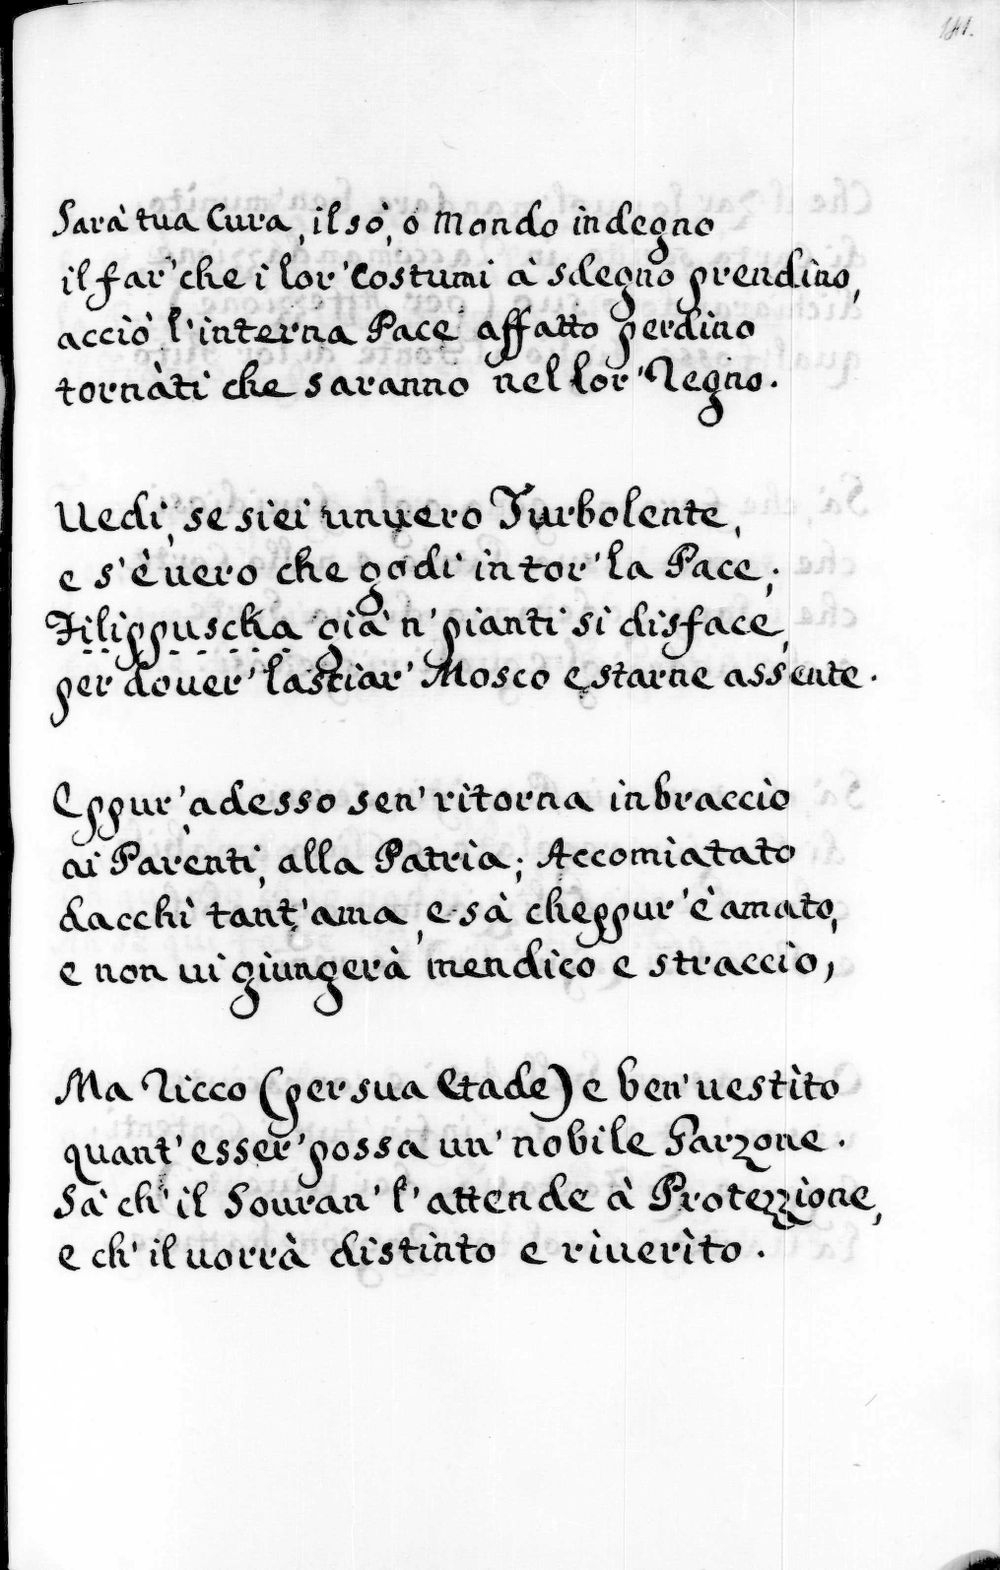 141.
Sarà tua Cura, il sò, ò Mondo indegno
il far' che i lor' Costumi à sdegno prendino,
acciò l'interna Pace affatto perdino
tornàti che saranno nel lor' Regno.
Uedi, se siei un uero Turbolente,
e s'è uero che godi in tor' la Pace;
Filippuscka già n' pianti si disface,
per douer' lasciar' Mosco e starne assente.
Eppur' adesso sen' ritorna in braccio
ai Parenti, alla Patria; Accomiatato
dacchì tant' ama, e sà cheppur' è amato,
e non ui giungerà mendico e straccio,
Ma Ricco (per sua Etade) e ben' uestito
quant' esser' possa un' nobile Garzone.
Sà ch' il Souran' l' attende à Protezzione,
e ch' il uorrà distinto e riuerito.